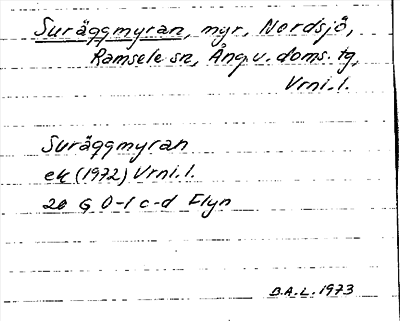 Suräggmyran, myr, Nordsjö,
Ramsele sn, Ång. v. doms. tg,
Vrni. l.
Suräggmyran
ek (1972) Vrni. l.
20 G 0-1 c-d Flyn
B.A.L. 1973